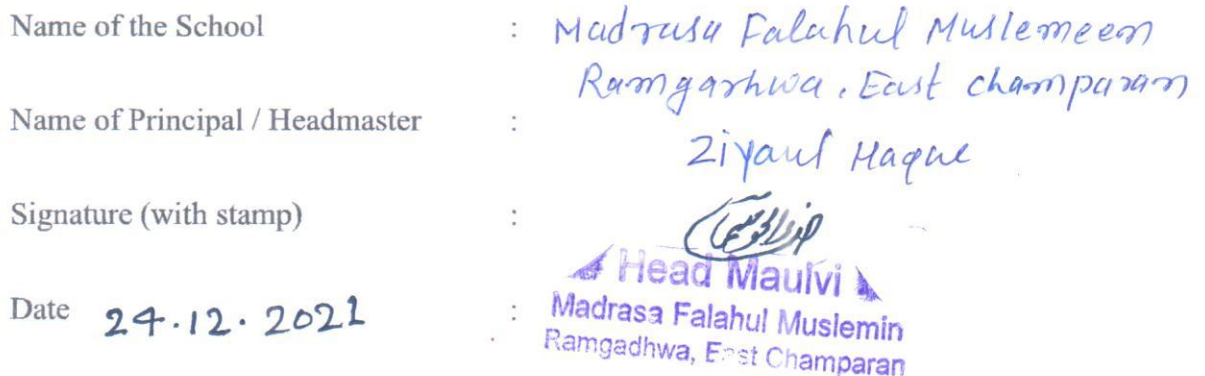 Name of the School : Madrasa Falahul Muslemeen
Ramgarhwa, East champaran
Name of Principal / Headmaster :
Ziyaul Haque
Signature (with stamp) :
Head Maulvi
Date 24.12.2021 : Madrasa Falahul Muslemin
Ramgadhwa, East Champaran